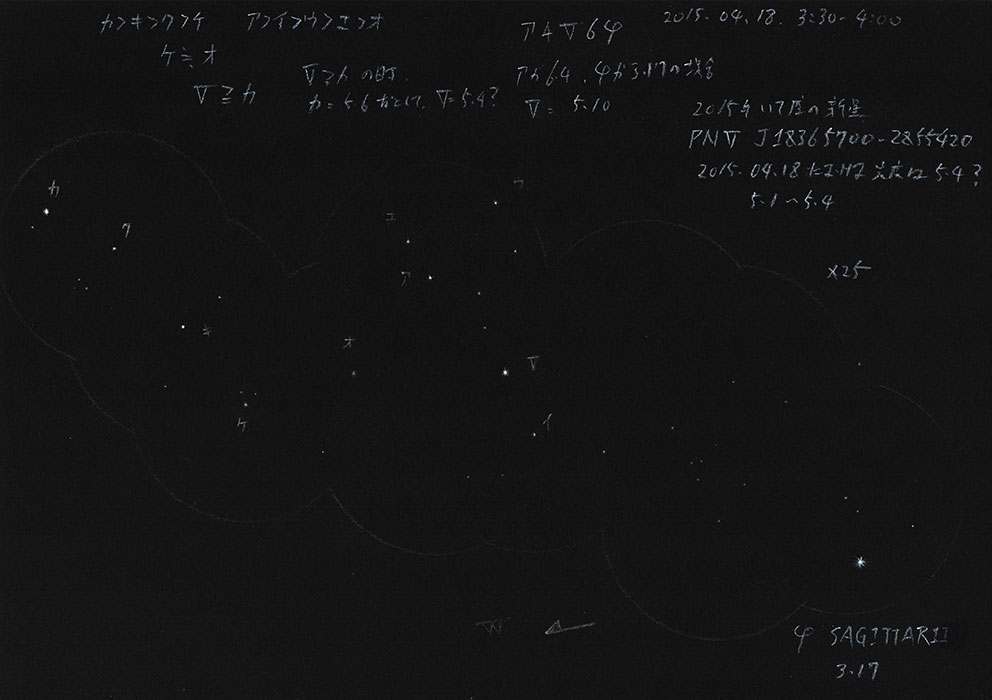 カ>キ>ク>ケ ア>イ>ウ>エ>オ
ケ≒オ
V≧カ
V≧カの時
カ=5.6だとして、V=5.4?
ア4V6φ
アが6.4、φが3.17の場合
V= 5.10
2015.04.18. 3:30-4:00
2015年いて座の新星
PNV J18365700-2855420
2015.04.18 における光度は5.4?
5.1~5.4
×25
カ
ク
キ
ケ
ウ
エ
ア
オ
V
イ
W
φ SAGITTARII
3.17